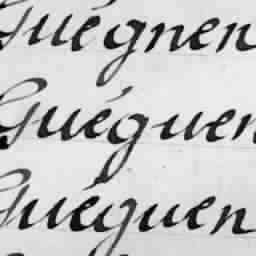 Guégnen
Guéguen
Guéguen